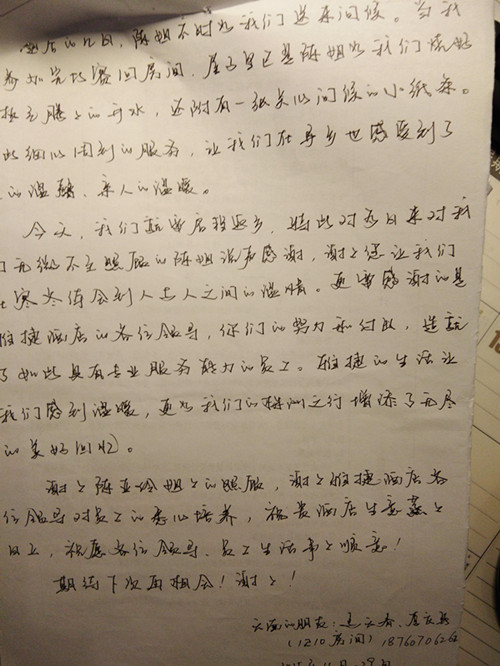 在后的几日,陈姐不时为我们送来问候。当我
参加完比赛回房间,屋子里已是陈姐为我们烧好
热腾腾的开水,还附有一张关心问候的小纸条。
此细心周到的服务,让我们在异乡也感受到了
的温馨、亲人的温暖。
今天,我们就要启程返乡,特此对多日来对我
们无微不至照顾的陈姐说声感谢,谢谢您让我们
在寒冬体会到人与人之间的温情。更要感谢的是
维捷酒店的各位领导,你们的努力和付出,造就
了如此具有专业服务能力的员工。维捷的生活让
我们感到温暖,更为我们的株洲之行增添了无尽
的美好回忆。
谢谢陈亚玲姐姐的照顾,谢谢维捷酒店各
位领导对员工的悉心培养,祝贵酒店生意蒸蒸
日上,祝愿各位领导、员工生活事事顺意!
期待下次再相会!谢谢!
的朋友:
(1210房间) 1876070626